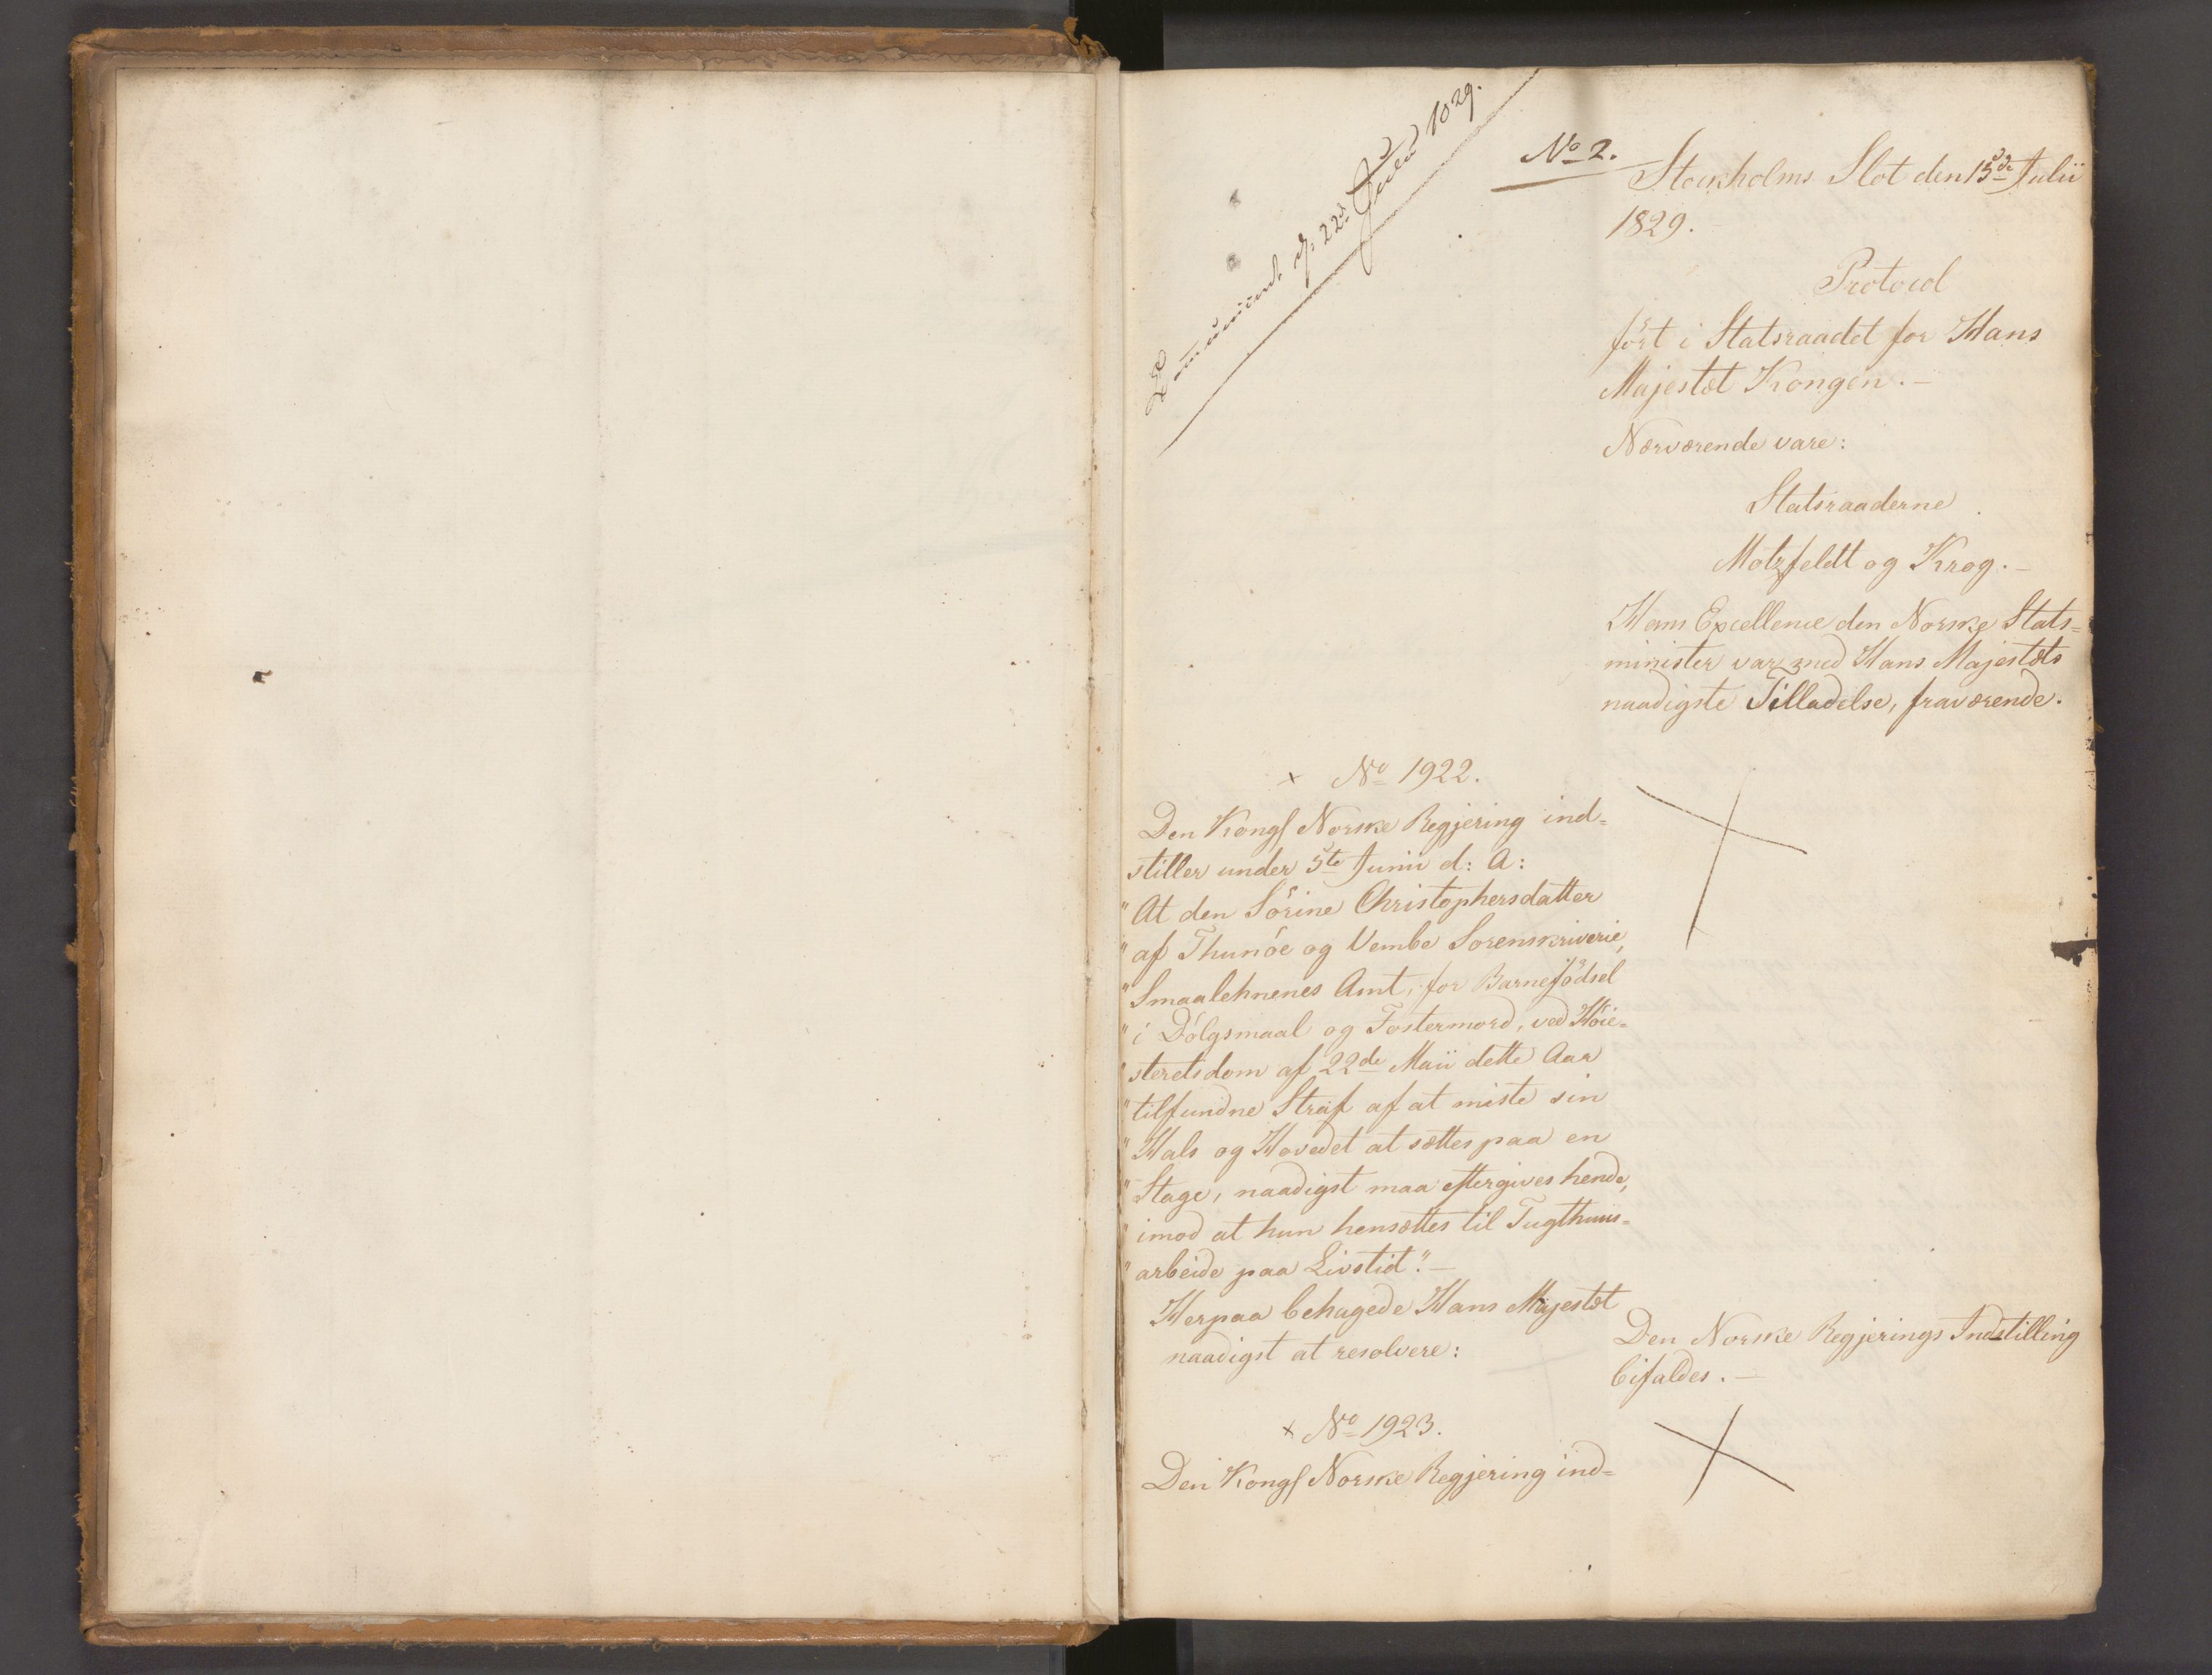 d. 22d Juli 1829.
No 2.
Stockholms Slot den 15de Julii
1829.
Protocol
ført i Statsraadet for Hans
Majestæt Kongen. —
Nærværende vare:
Statsraaderne
Motzfeldt og Krog. —
Hans Excellence den Norske Stats=
minister var med Hans Majestæts
naadigste Tilladelse, fraværende.
x No 1922.
Den Kongl Norske Regjering ind=
stiller under 5te Junii d: A:
"At den Sørine Christophersdatter
"af Thunøe og Vembe Sorenskriverie,
"Smaalehnenes Amt, for Barnefødsel
"i Dølgsmaal og Fostermord, ved Høie=
"steretsdom af 22de Maii dette Aar
"tilfundne Straf af at miste sin
"Hals og Hovedet at sættes paa en
"Stage, naadigst maa eftergives hende,
"imod at hun hensættes til Tugthuus=
"arbeide paa Livstid". —
Herpaa behagede Hans Majestæt
naadigst at resolvere:
Den Norske Regjerings Indstilling
bifaldes. —
x No 1923.
Den Kongl Norske Regjering ind=